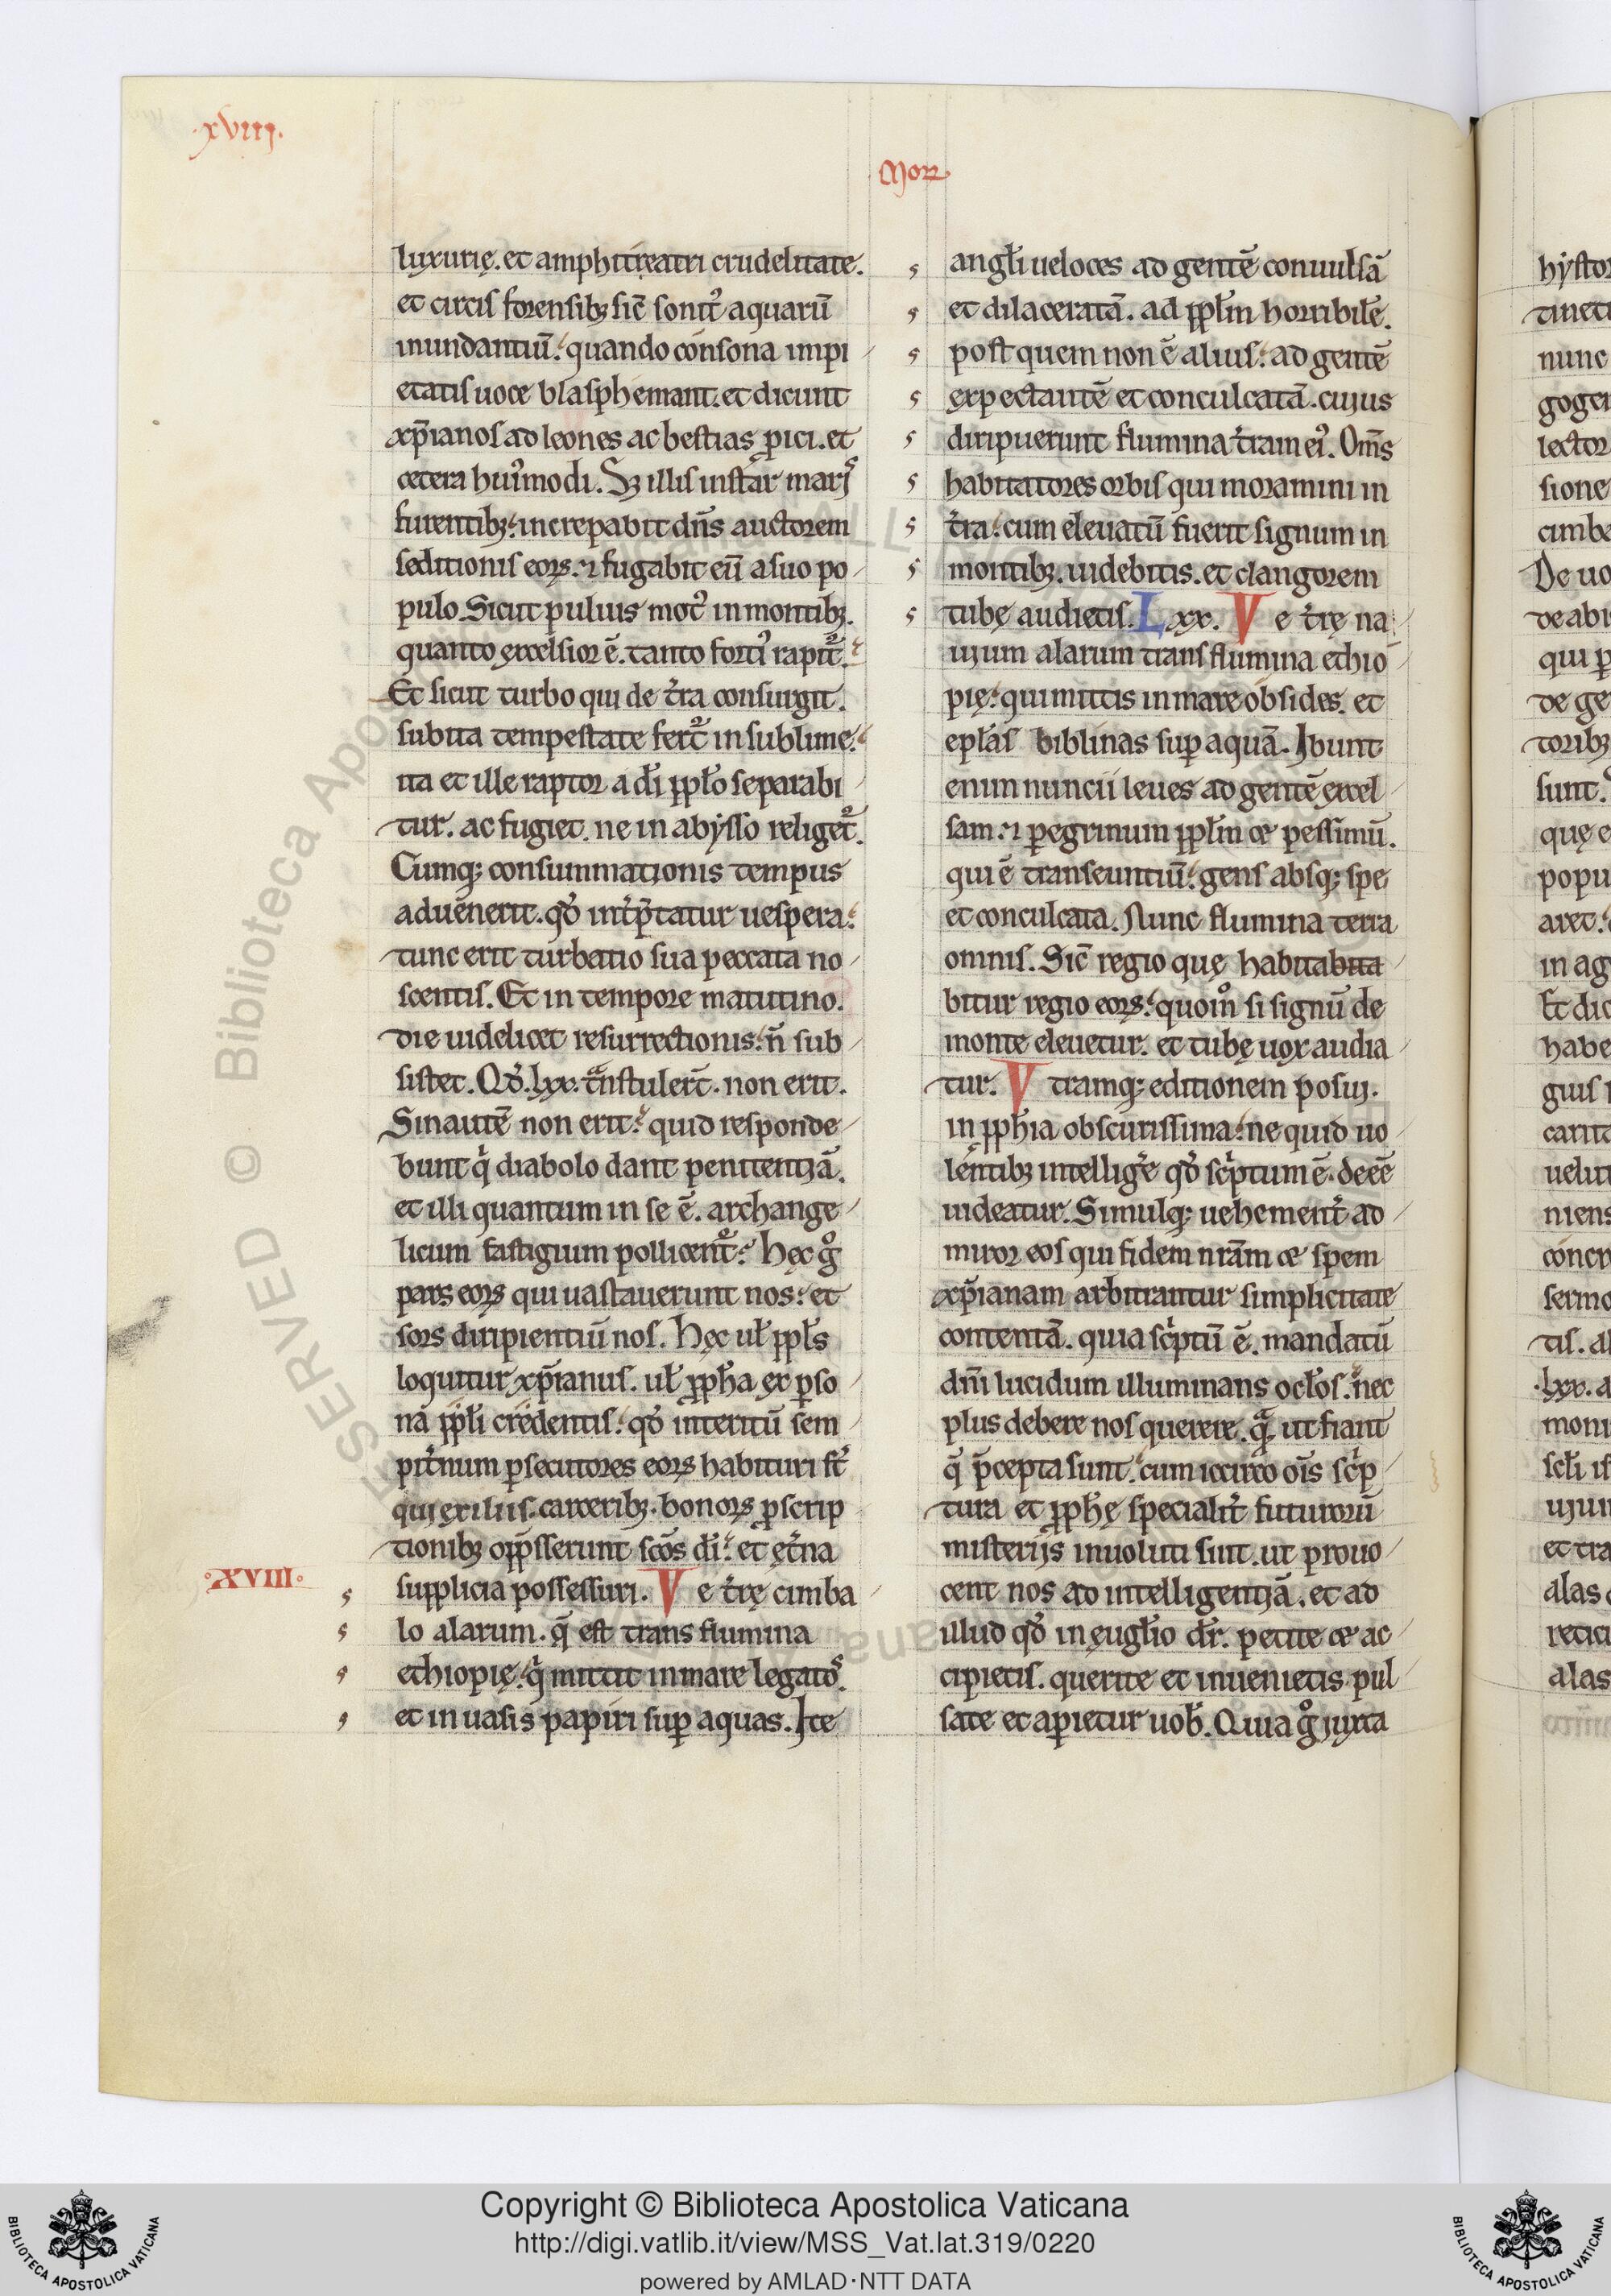 ·xviij.
Mor
luxurię. et amphitreatri crudelitate.
et circis forensibꝫ sic̄ sonit᷒ aquarū
inundantiū. quando consona impi
etatis uoce blasphemant. et dicunt
xp̄ianos ad leones ac bestias ꝓici. et
cetera hui᷒modi. Sꝫ illis instar maris
furentibꝫ. increpabit dn̄s auctorem
seditionis eoꝝ. ⁊ fugabit eū a suo po
pulo. Sicut puluis mot᷒ in montibꝫ.
quanto excelsior ē. tanto forti᷒ rapit̄.
Et sicut turbo qui de t̄ra consurgit.
subita tempestate fert̄ in sublime.
ita et ille raptor a di̅ ppło separabi
tur. ac fugiet. ne in abysso religet̄.
Cumq; consummationis tempus
aduenerit. qđ int̄p̄tatur uespera.
tunc erit turbatio sua peccata no
scentis. Et in tempore matutino.
die uidelicet resurrectionis. n̄ sub
sistet. Qđ .lxx. tᵃnstulert̄. non erit.
Sin autē non erit. quid responde
bunt qͥ diabolo dant penitentiā.
et illi quantum in se ē. archange
licum fastigium pollicent̄. Hęc gͦ
pars eoꝝ qui uastauerunt nos. et
sors diripientiū nos. Hęc uł ppłs
loquitur xp̄ianus. uł ꝓpħa ex ꝑso
na ppłi credentis. qđ interitū sem
pit̄num ꝑsecutores eoꝝ habituri st̄
qui exiliis. carceribꝫ. bonoꝝ ꝓscrip
tionibꝫ opp̄sserunt scōs di̅. et ęt̄na
·XVIII·
supplicia possessuri. Ve t̄rę cimba
lo alarum. q̄ est trans flumina
ethiopię. qͥ mittit in mare legatos.
et in uasis papiri suꝑ aquas. Ite
angłi ueloces ad gentē conuulsā
et dilaceratā. ad ppłm horribilē.
post quem non ē alius. ad gentē
expectantē et conculcatā. cuius
diripuerunt flumina t̄ram ei᷒. Om̄s
habitatores orbis qui moramini in
t̄ra. cum eleuatū fuerit signum in
montibꝫ. uidebitis. et clangorem
tubę audietis. Lxx. Ve t̄rę na
uium alarum trans flumina ethio
pię. qui mittis in mare obsides. et
epłas biblinas suꝑ aquā. Ibunt
enim nuncii leues ad gentē excel
sam. ⁊ ꝑegrinum ppłm & pessimū.
qui ē transeuntiū. gens absq; spe
et conculcata. Nunc flumina terra
omnis. Sic̄ regio quę habitabita
bitur regio eoꝝ. quoniͦm si signū de
monte eleuetur. et tubę uox audia
tur. Vtramq; editionem posui.
in ꝓpħia obscurissima. ne quid uo
lentibꝫ intelligere qđ scͥptum ē. deeē
uideatur. Simulq; uehement̄ ad
miror eos qui fidem nr̄am & spem
xp̄ianam arbitrantur simplicitate
contentā. quia scͥptū ē. mandatū
dn̄i lucidum illuminans ocłos. nec
plus debere nos querere. qᵃ ut fiant
q̄ p̄cepta sunt. cum iccirco oīs scͥp
tura et ꝓpħę specialit̄ futurorū
misterijs inuoluti sint. ut prouo
cent nos ad intelligentiā. et ad
illud qđ in eugłio dr̄. petite & ac
cipietis. querite et inuenietis. pul
sate et aꝑietur uob̄. Quia gͦ iuxta
Copyright © Biblioteca Apostolica Vaticana
http://digi.vatlib.it/view/MSS_Vat.lat.319/0220
powered by AMLAD·NTT DATA